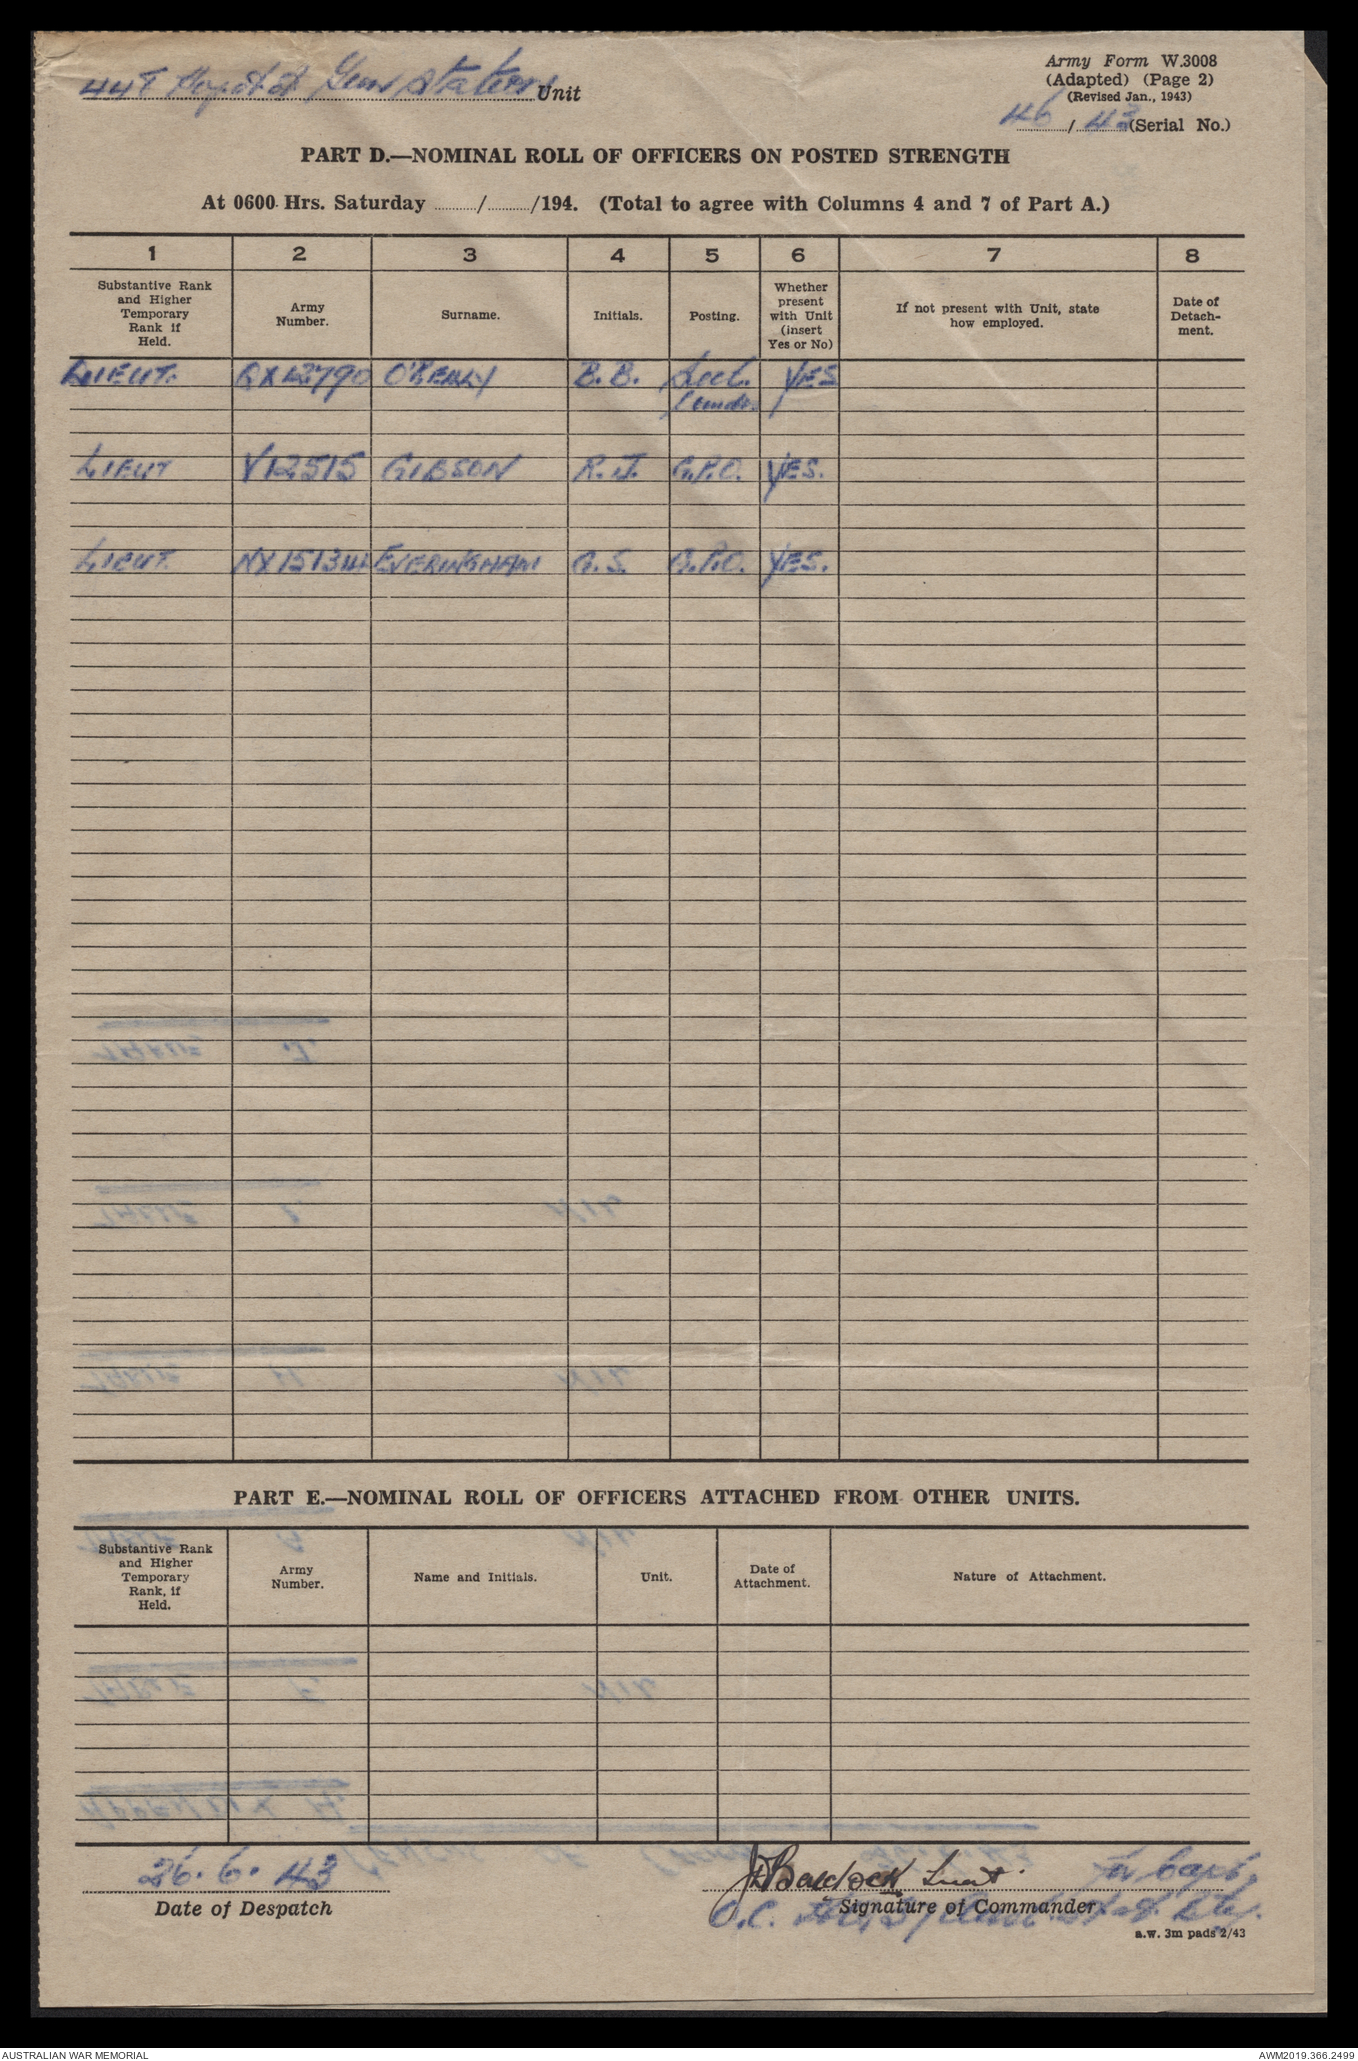 Gun Station Unit
Army Form W.3008
(Adapted) (Page 2)
(Revised Jan., 1943)
46/43 (Serial No.)
PART D.—NOMINAL ROLL OF OFFICERS ON POSTED STRENGTH
At 0600 Hrs. Saturday ........../........../194. (Total to agree with Columns 4 and 7 of Part A.)
1 2 3 4 5 6 7 8
Substantive Rank and Higher Temporary Rank if Held.
Army Number.
Surname.
Initials.
Posting.
Whether present with Unit (insert Yes or No)
If not present with Unit, state how employed.
Date of Detach-ment.
LIEUT. QX12790 B.B. Sect. YES
LIEUT V12515 GIBSON R.J. G.P.O. YES.
LIEUT. EVERINGHAM G.S. G.P.O. YES.
PART E.—NOMINAL ROLL OF OFFICERS ATTACHED FROM OTHER UNITS.
Substantive Rank and Higher Temporary Rank, if Held.
Army Number.
Name and Initials.
Unit.
Date of Attachment.
Nature of Attachment.
26.6.43
Baldock Lieut. for Capt.
Date of Despatch
Signature of Commander
O.C.
a.w. 3m pads 2/43
AUSTRALIAN WAR MEMORIAL
AWM2019.366.2499